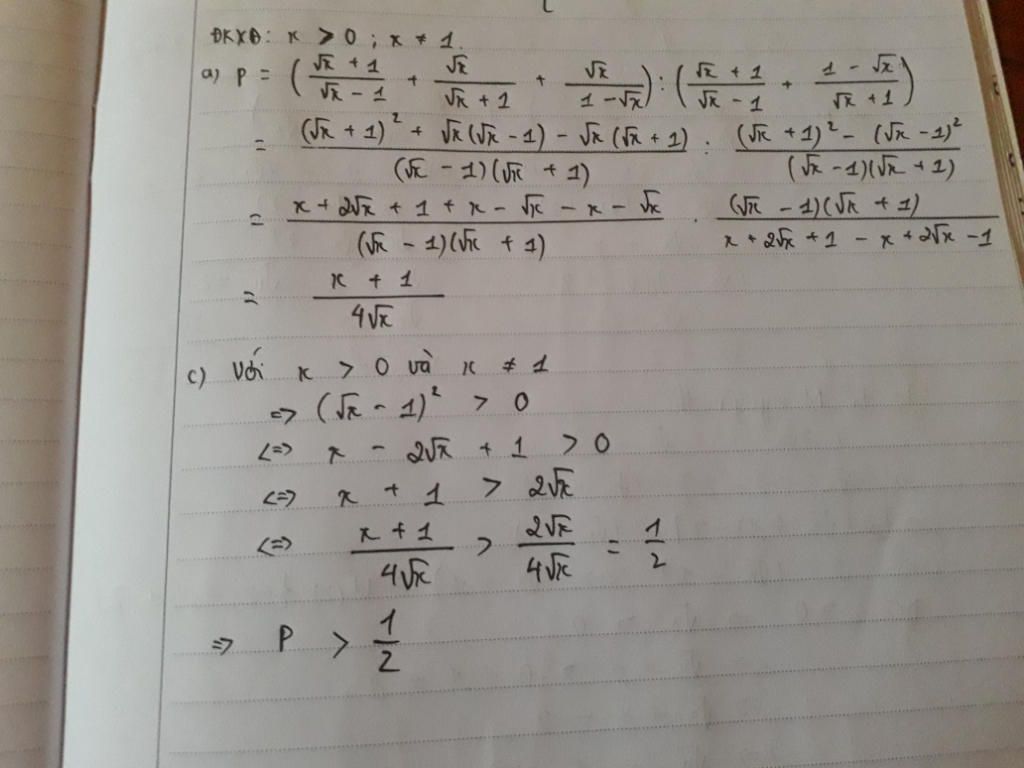 ĐKXĐ: x > 0 ; x ≠ 1.
a) P = ( (√x + 1)/(√x - 1) + √x/(√x + 1) + √x/(1 - √x) ) : ( (√x + 1)/(√x - 1) + (1 - √x)/(√x + 1) )
= ((√x + 1)² + √x(√x - 1) - √x(√x + 1))/((√x - 1)(√x + 1)) : ((√x + 1)² - (√x - 1)²)/((√x - 1)(√x + 1))
= (x + 2√x + 1 + x - √x - x - √x)/((√x - 1)(√x + 1)) . ((√x - 1)(√x + 1))/(x + 2√x + 1 - x + 2√x - 1)
= (x + 1)/(4√x)
c) Với x > 0 và x ≠ 1
=> (√x - 1)² > 0
<=> x - 2√x + 1 > 0
<=> x + 1 > 2√x
<=> (x + 1)/(4√x) > (2√x)/(4√x) = 1/2
=> P > 1/2